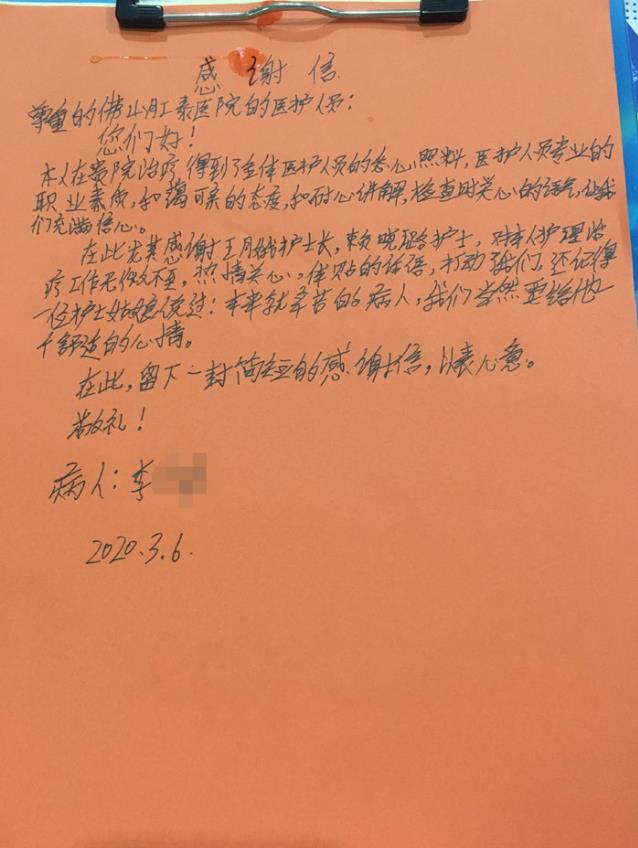 感谢信
尊重的佛山肛泰医院的医护人员：
您们好！
本人在贵院治疗，得到了全体医护人员的悉心照料，医护人员专业的
职业素质，和蔼可亲的态度，和耐心讲解，检查时关心的语气，让我
们充满信心。
在此尤其感谢王月娥护士长，赖晓璐护士，对本人护理治
疗工作无微不至，热情关心，体贴的话语，打动了我们，还记得
一位护士姑娘说过：本来就辛苦的病人，我们当然要给他
个舒适的心情。
在此，留下一封简短的感谢信，以表心意。
敬礼！
病人：李
2020.3.6.